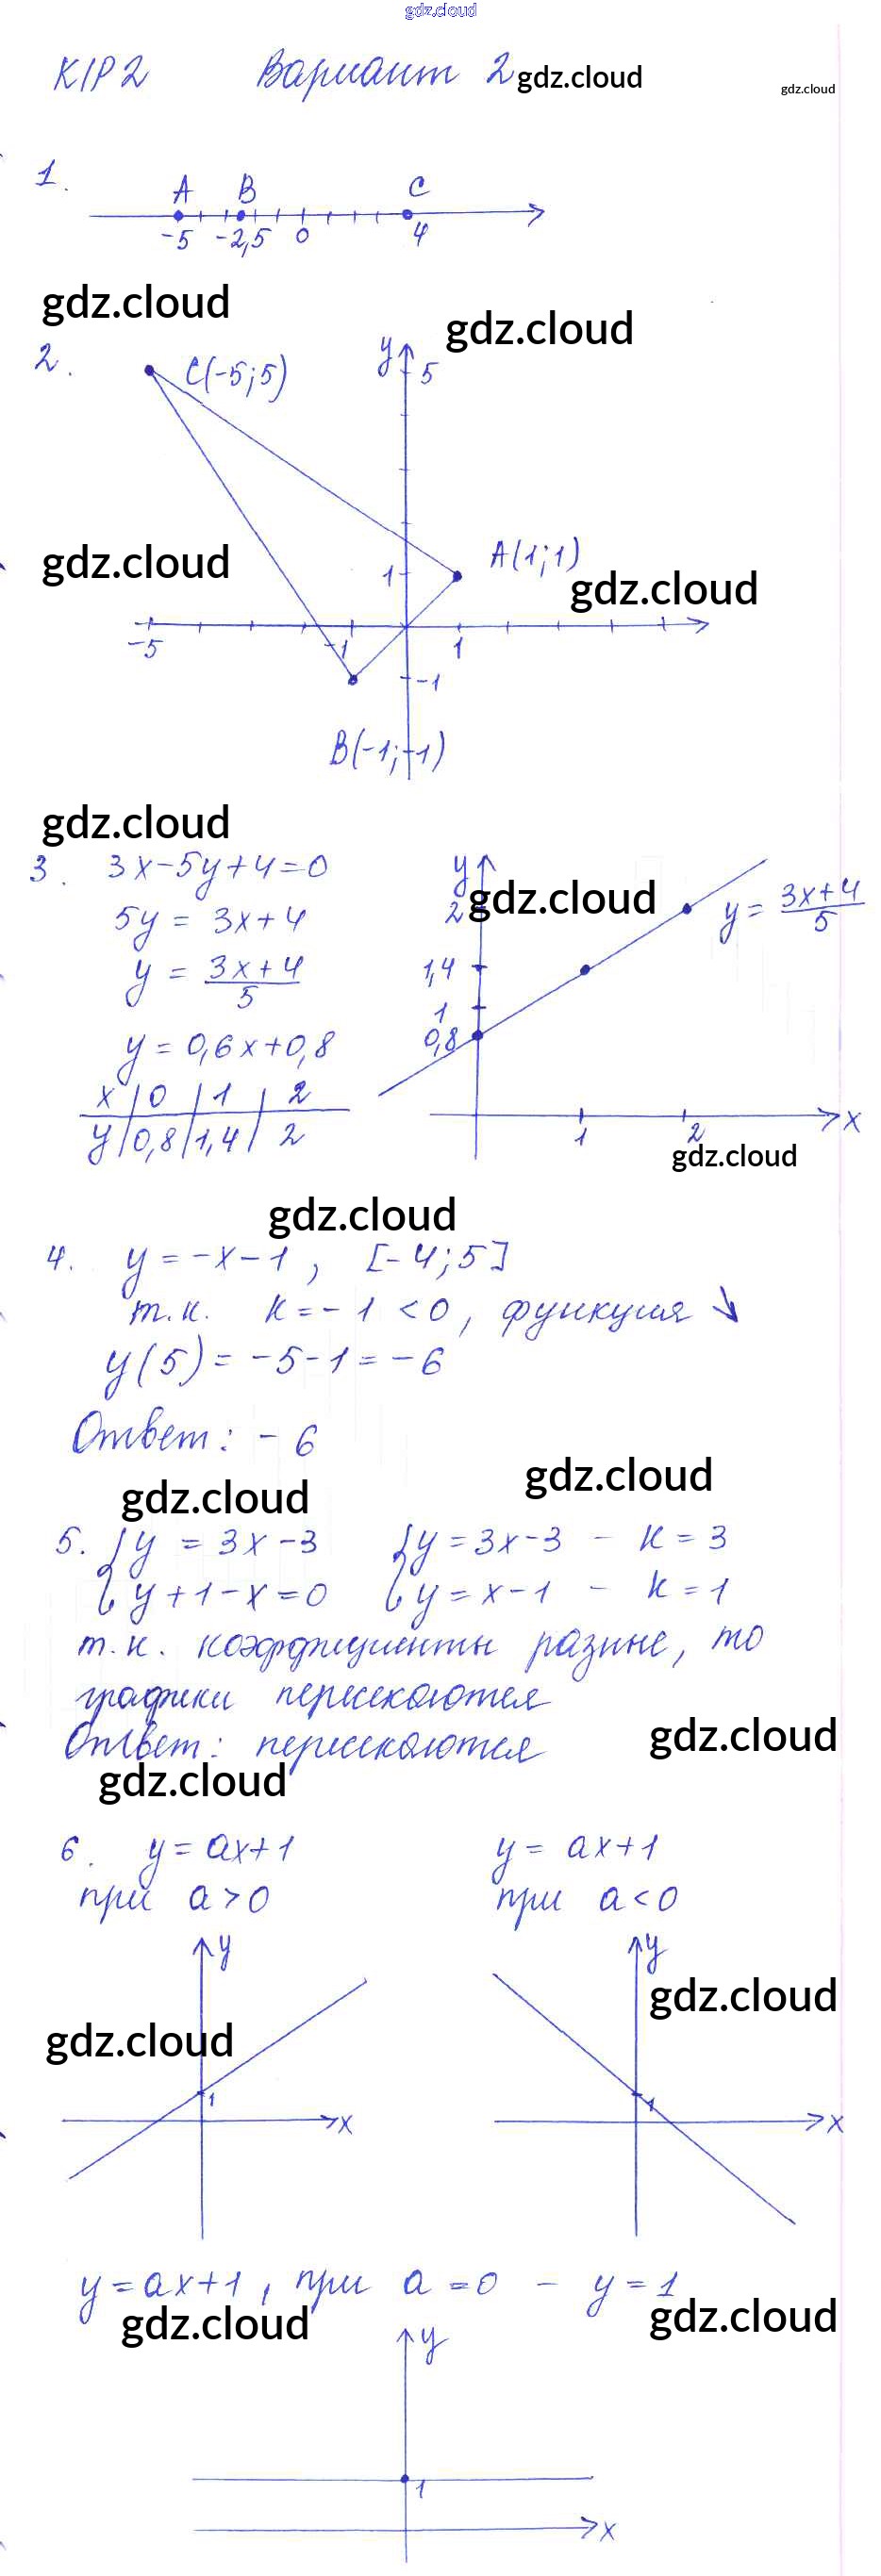 gdz.cloud
К/Р 2 Вариант 2 gdz.cloud gdz.cloud
1.
A B C
-5 -2,5 0 4
gdz.cloud
gdz.cloud
2.
C(-5;5) y 5
A(1;1)
gdz.cloud
1
gdz.cloud
-5 -1 1
-1
B(-1;-1)
gdz.cloud
3. 3x-5y+4=0
5y = 3x+4
y = 3x+4/5
y = 0,6x+0,8
x 0 1 2
y 0,8 1,4 2
y
gdz.cloud
2
y = 3x+4/5
1,4
1
0,8
1 2 x
gdz.cloud
gdz.cloud
4. y = -x-1, [-4;5]
т.к. k=-1 <0, функция ↘
y(5) = -5-1=-6
Ответ: -6
gdz.cloud
gdz.cloud
5. { y = 3x-3 { y=3x-3 - k=3
{ y+1-x=0 { y=x-1 - k=1
т.к. коэффициенты разные, то
графики пересекаются
gdz.cloud
Ответ: пересекаются
gdz.cloud
6. y = ax+1 y = ax+1
при a>0 при a<0
y y
gdz.cloud
gdz.cloud
1 1
x x
y=ax+1, при a=0 - y=1
gdz.cloud gdz.cloud
y
1
x